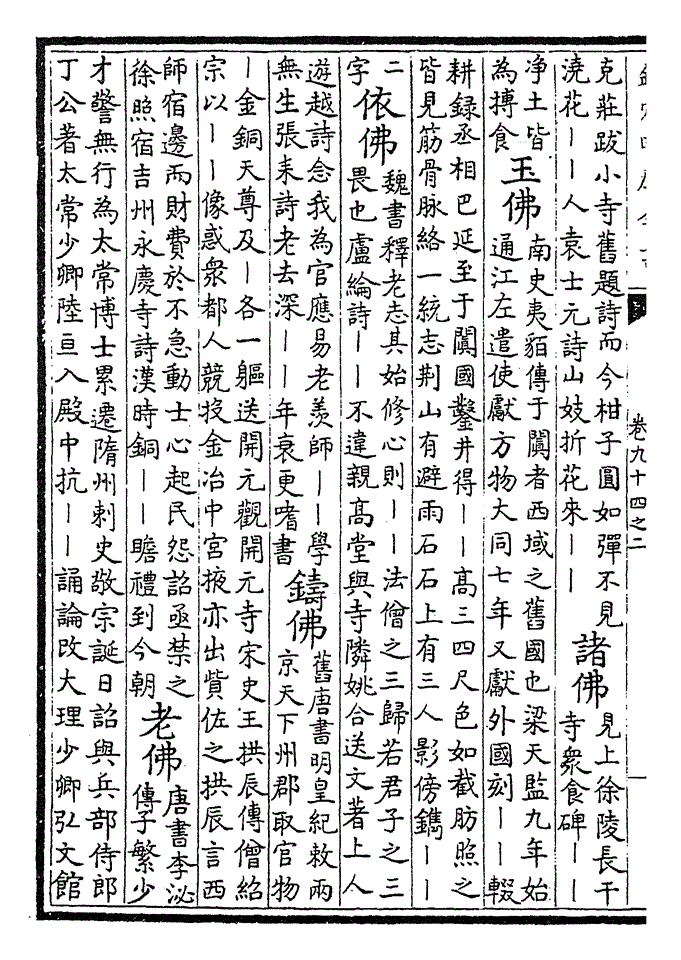 卷九十四之二
克莊跋小寺舊題詩而今柑子圓如彈不見
澆花――人袁士元詩山妓折花來――
諸佛
見上徐陵長干
寺衆食碑――
淨土皆
為摶食
玉佛
南史夷貊傳于闐者西域之舊國也梁天監九年始
通江左遣使獻方物大同七年又獻外國刻――輟
耕録丞相巴延至于闐國鑿井得――高三四尺色如截肪照之
皆見筋骨脉絡一統志荆山有避雨石石上有三人影傍鐫――
二
字
依佛
魏書釋老志其始修心則――法僧之三歸若君子之三
畏也盧綸詩――不違親髙堂與寺隣姚合送文著上人
遊越詩念我為官應易老羨師――學
無生張耒詩老去深――年衰更嗜書
鑄佛
舊唐書明皇紀敕兩
京天下州郡取官物
―金銅天尊及―各一軀送開元觀開元寺宋史王拱辰傳僧紹
宗以――像惑衆都人競投金冶中宮掖亦出貲佐之拱辰言西
師宿邊而財費於不急動士心起民怨詔亟禁之
徐照宿吉州永慶寺詩漢時銅――瞻禮到今朝
老佛
唐書李泌
傳子繁少
才警無行為太常博士累遷隋州刺史敬宗誕日詔與兵部侍郎
丁公著太常少卿陸亘入殿中抗――誦論改大理少卿弘文館